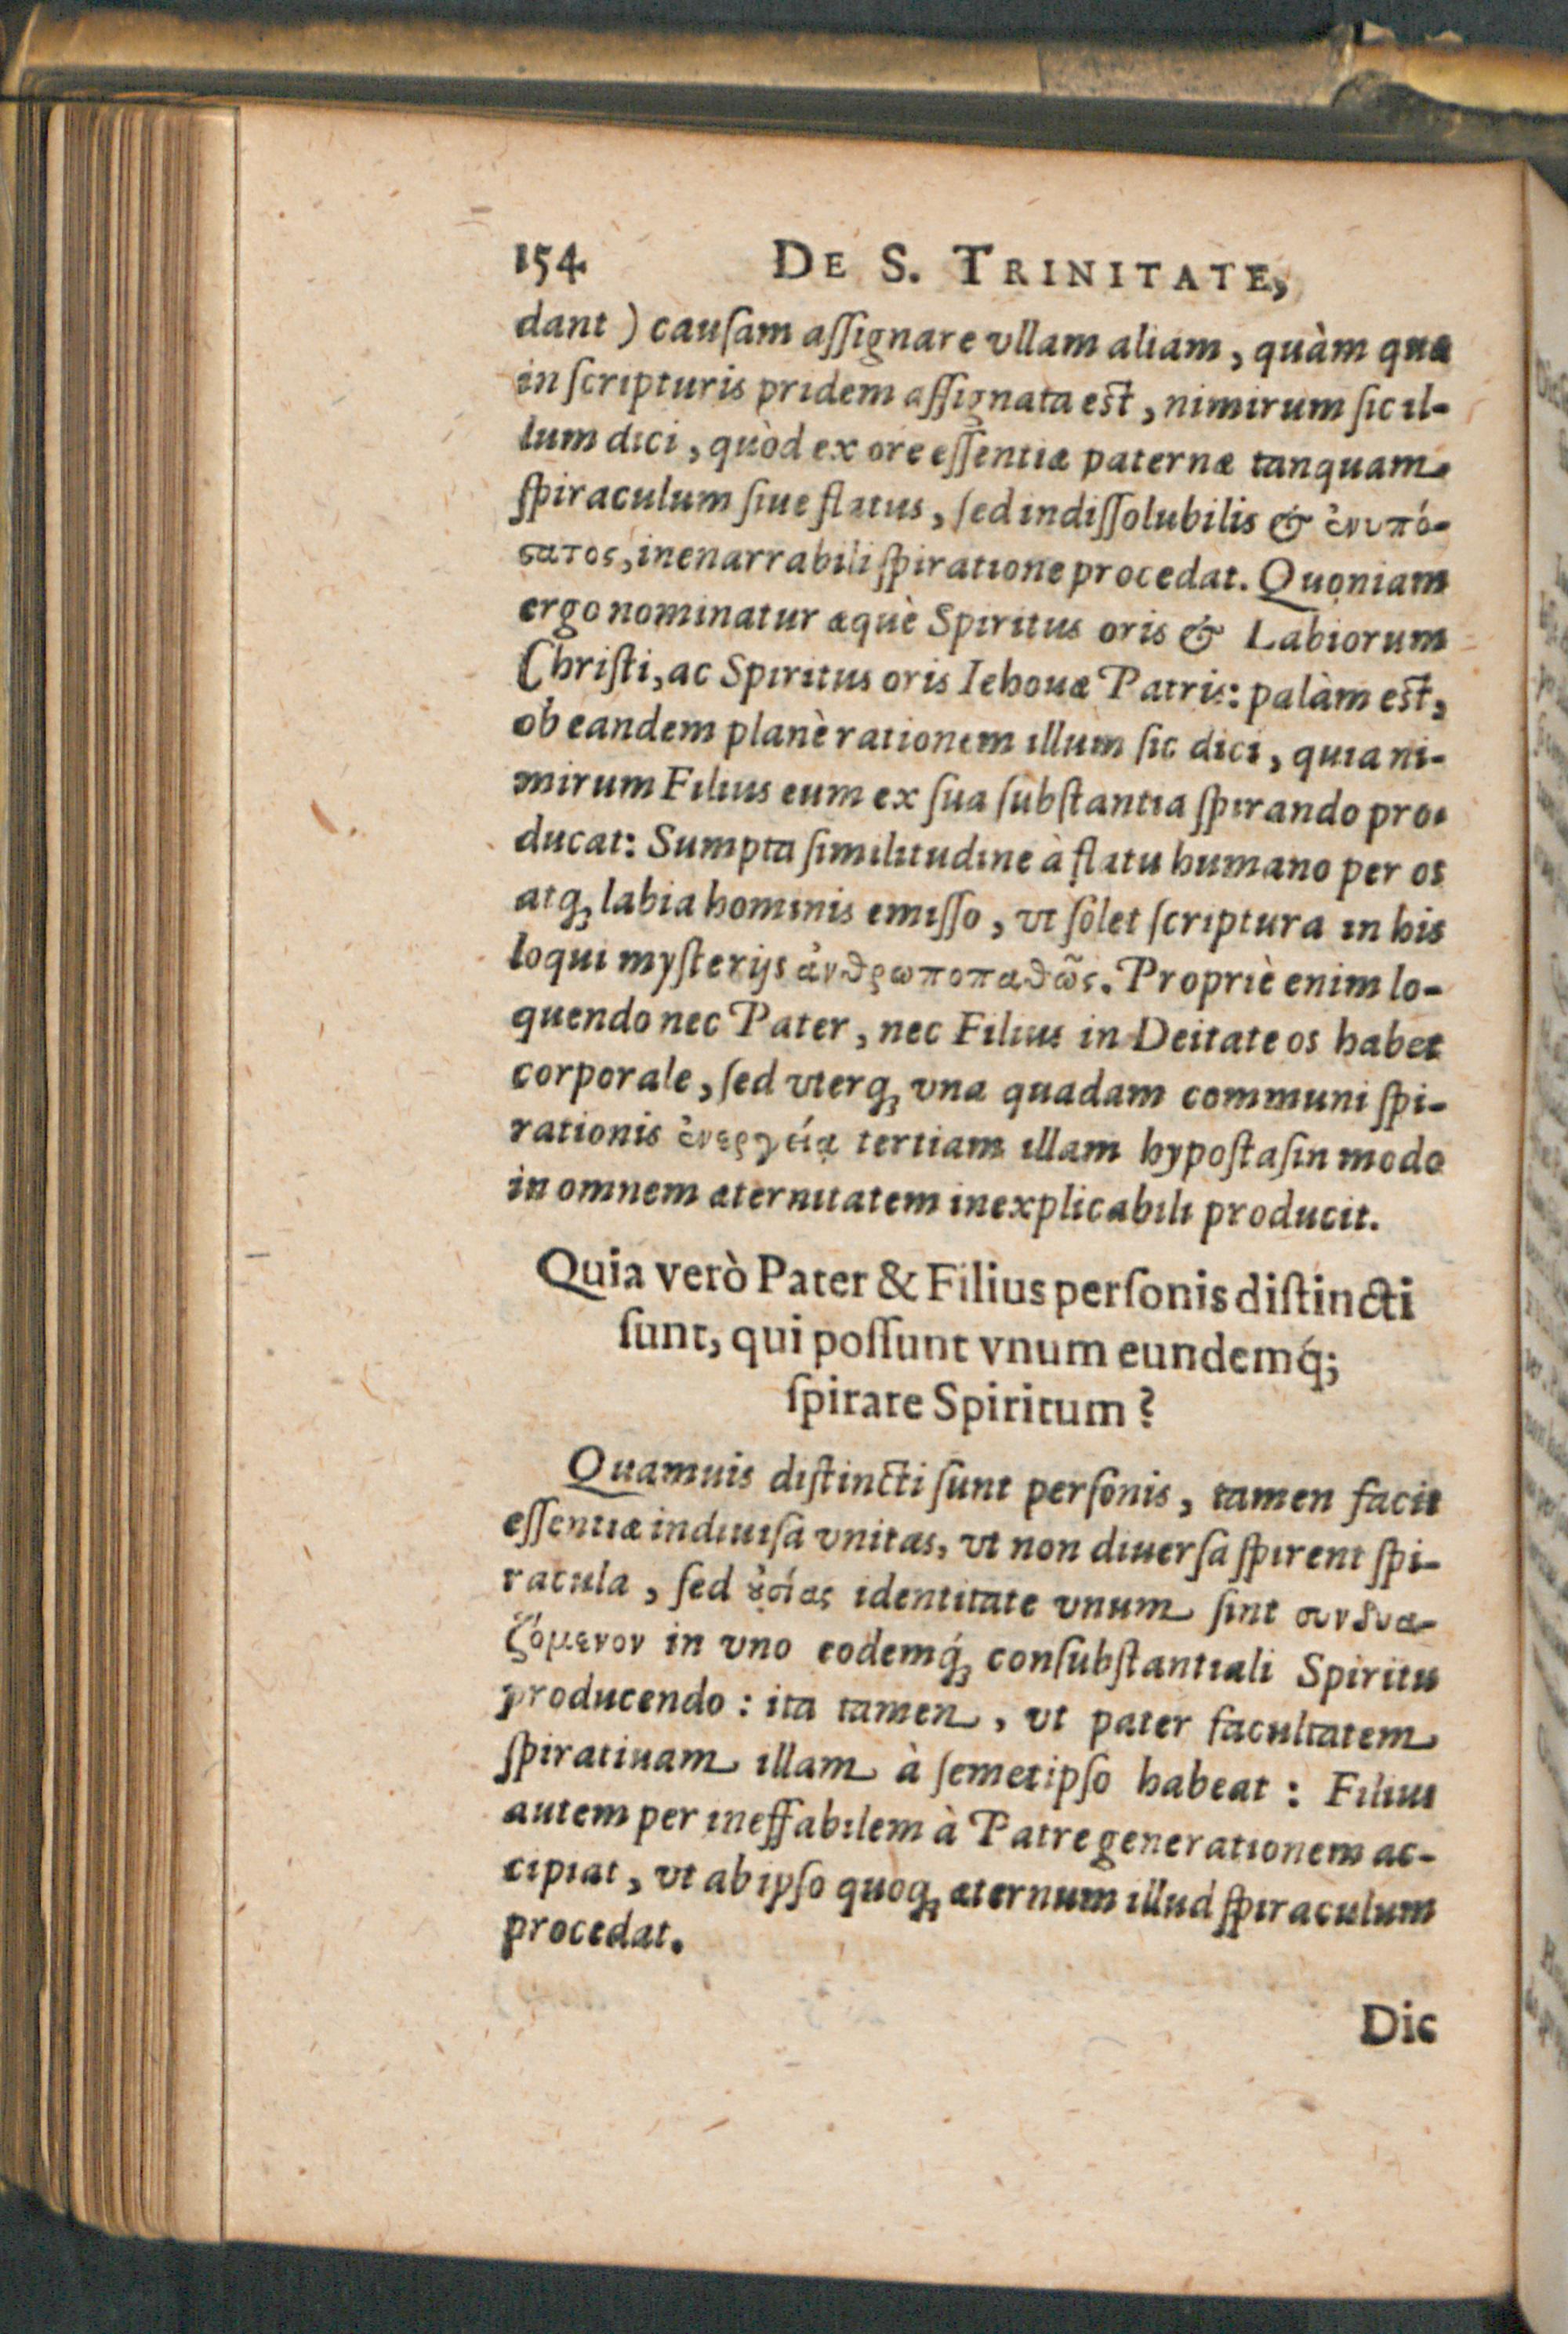 154 DE S. TRINITATE,
dant ) cauſam aſſignare vllam aliam, quàm quæ
in ſcripturis pridem aſſignata est, nimirum ſic il-
lum dici, quòd ex ore eſſentiæ paternæ tanquam
ſpiraculum ſiue flatus, ſed indiſſolubilis & ἐνυπό-
ϛατος, inenarrabili ſpiratione procedat. Quoniam
ergo nominatur æquè Spiritus oris & Labiorum
Chriſti, ac Spiritus oris Iehouæ Patris: palàm est,
ob eandem planè rationem illum ſic dici, quia ni-
mirum Filius eum ex ſua ſubſtantia ſpirando pro-
ducat: Sumpta ſimilitudine à flatu humano per os
atq; labia hominis emiſſo, vt ſolet ſcriptura in his
loqui myſterijs ἀνθρωποπαθῶς. Propriè enim lo-
quendo nec Pater, nec Filius in Deitate os habet
corporale, ſed vterq; vna quadam communi ſpi-
rationis ἐνεργείᾳ tertiam illam hypoſtaſin modo
in omnem æternitatem inexplicabili producit.
Quia verò Pater & Filius perſonis diſtincti
ſunt, qui poſſunt vnum eundemq́;
ſpirare Spiritum?
Quamuis diſtincti ſunt perſonis, tamen facit
eſſentiæ indiuiſa vnitas, vt non diuerſa ſpirent ſpi-
racula, ſed ȣ̓σίας identitate vnum ſint συνδυα-
ζόμενον in vno eodemq́; conſubſtantiali Spiritu
producendo: ita tamen, vt pater facultatem
ſpiratiuam illam à ſemetipſo habeat: Filius
autem per ineffabilem à Patre generationem ac-
cipiat, vt ab ipſo quoq; æternum illud ſpiraculum
procedat.
Dic